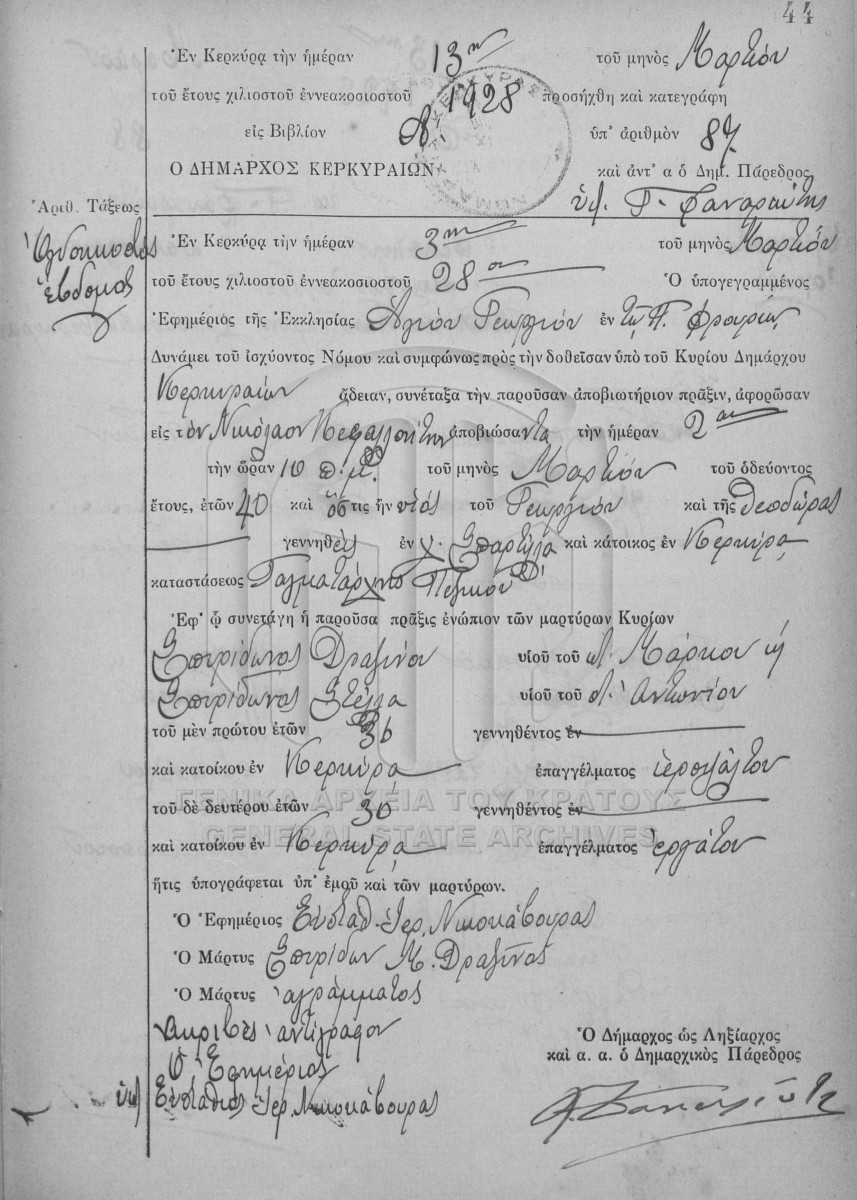 44
Ἐν Κερκύρᾳ τὴν ἡμέραν 13ην τοῦ μηνὸς Μαρτίου
τοῦ ἔτους χιλιοστοῦ ἐννεακοσιοστοῦ 1928 προσήχθη καὶ κατεγράφη
εἰς Βιβλίον Α. ὑπ' ἀριθμὸν 87
Ο ΔΗΜΑΡΧΟΣ ΚΕΡΚΥΡΑΙΩΝ καὶ ἀντ' α ὁ Δημ. Πάρεδρος
Ἀριθ. Τάξεως
Ὀγδοηκοστὸς
ἕβδομος
Ἐν Κερκύρᾳ τὴν ἡμέραν 3ην τοῦ μηνὸς Μαρτίου
τοῦ ἔτους χιλιοστοῦ ἐννεακοσιοστοῦ 28ου Ὁ ὑπογεγραμμένος
Ἐφημέριος τῆς Ἐκκλησίας Ἁγίου Γεωργίου ἐν τῷ Π. Φρουρίῳ
Δυνάμει τοῦ ἰσχύοντος Νόμου καὶ συμφώνως πρὸς τὴν δοθεῖσαν ὑπὸ τοῦ Κυρίου Δημάρχου
Κερκυραίων ἄδειαν, συνέταξα τὴν παροῦσαν ἀποβιωτήριον πρᾶξιν, ἀφορῶσαν
εἰς τὸν Νικόλαον Κεφαλλονίτην ἀποβιώσαντα τὴν ἡμέραν 2αν
τὴν ὥραν 10 π.μ. τοῦ μηνὸς Μαρτίου τοῦ ὁδεύοντος
ἔτους, ἐτῶν 40 καὶ ὅστις ἦν υἱὸς τοῦ Γεωργίου καὶ τῆς Θεοδώρας
γεννηθεὶς ἐν χ. Σπαρτύλα καὶ κάτοικος ἐν Κερκύρᾳ
καταστάσεως Ταγματάρχης Πεζικοῦ
Ἐφ' ᾧ συνετάγη ἡ παροῦσα πρᾶξις ἐνώπιον τῶν μαρτύρων Κυρίων
Σπυρίδωνος Δραζίνου υἱοῦ τοῦ Μάρκου ἢ
Σπυρίδωνος Στέλλα υἱοῦ τοῦ Ἀντωνίου
τοῦ μὲν πρώτου ἐτῶν 36 γεννηθέντος ἐν
καὶ κατοίκου ἐν Κερκύρᾳ ἐπαγγέλματος ἱεροψάλτου
τοῦ δὲ δευτέρου ἐτῶν 30 γεννηθέντος ἐν
ΓΕΝΙΚΑ ΑΡΧΕΙΑ ΤΟΥ ΚΡΑΤΟΥΣ
GENERAL STATE ARCHIVES
καὶ κατοίκου ἐν Κερκύρᾳ ἐπαγγέλματος ἐργάτου
ἥτις ὑπογράφεται ὑπ' ἐμοῦ καὶ τῶν μαρτύρων.
Ὁ Ἐφημέριος Εὐστάθ. Ἱερ. Νικοκάβουρας
Ὁ Μάρτυς Σπυρίδων Μ. Δραζῖνος
Ὁ Μάρτυς ἀγράμματος
Ἀκριβὲς ἀντίγραφον
Ὁ Ἐφημέριος
ὑπ. Εὐστάθιος Ἱερ. Νικοκάβουρας
Ὁ Δήμαρχος ὡς Ληξίαρχος
καὶ α. α. ὁ Δημαρχικὸς Πάρεδρος